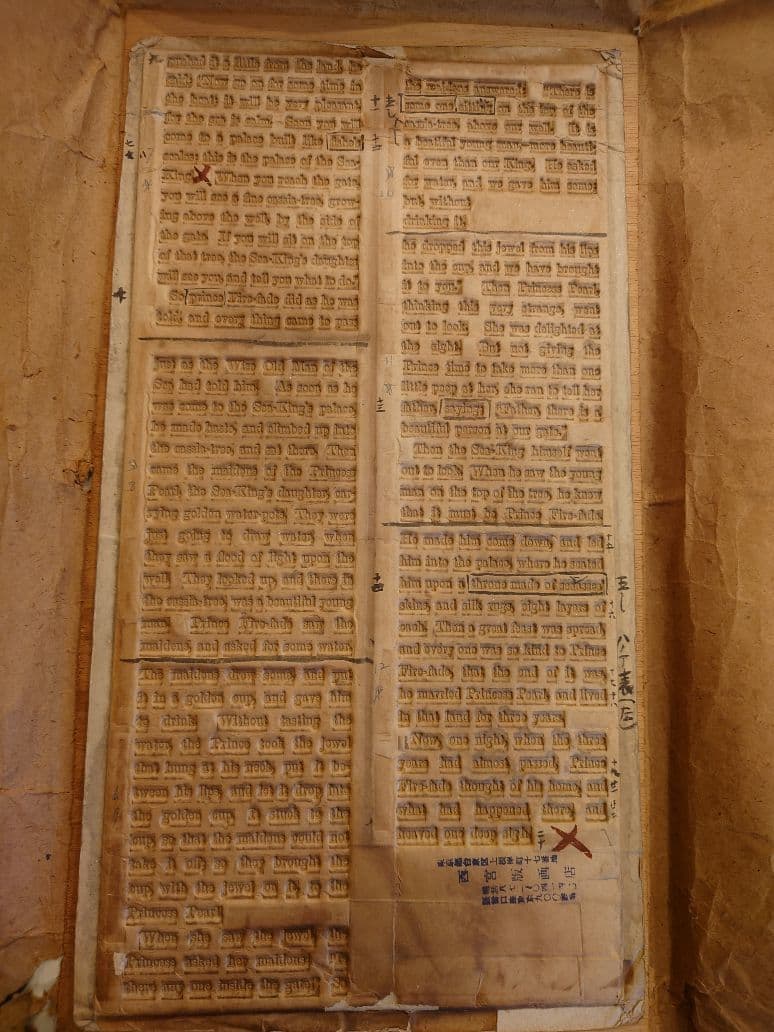 pushed it a little from the land, he
said: "Now go on for some time in
the boat; it will be very pleasant,
for the sea is calm. Soon you will
come to a palace built like fishe's
scales; this is the palace of the Sea-
King. When you reach the gate,
you will see a fine cassia-tree, grow-
ing above the well, by the side of
the gate. If you will sit on the top
of that tree, the Sea-King's daughter
will see you, and tell you what to do."
So prince Fire-fade did as he was
told, and every thing came to pass
just as the Wise Old Man of the
Sea had told him. As soon as he
was come to the Sea-King's palace,
he made haste, and climbed up into
the cassia-tree, and sat there. Then
came the maidens of the Princess
Pearl, the Sea-King's daughter, car-
rying golden water-pots. They were
just going to draw water, when
they saw a flood of light upon the
well. They looked up, and there in
the cassia-tree, was a beautiful young
man. Prince Fire-fade saw the
maidens, and asked for some water.
The maidens drew some, and put
it in a golden cup, and gave him
to drink. Without tasting the
water, the Prince took the jewel
that hung at his neck, put it be-
tween his lips, and let it drop into
the golden cup. It stuck to the
cup, so that the maidens could not
take it off; so they brought the
cup, with the jewel on it, to the
Princess Pearl.
When she saw the jewel, the
Princess asked her maidens: "Is
there any one inside the gate?" So
the maidens answered: "There is
some one sitting on the top of the
cassia-tree, above our well. It is
a beatiful young man,—more beauti-
ful even than our King. He asked
for water, and we gave him some;
but, without
drinking it,
he dropped this jewel from his lips
into the cup, and we have brought
it to you." Then Princess Pearl,
thinking this very strange, went
out to look. She was delighted at
the sight. But not giving the
Prince time to take more than one
little peep at her, she ran to tell her
father, saying: "Father, there is a
beautiful person at our gate."
Then the Sea-King himself went
out to look. When he saw the young
man on the top of the tree, he knew
that it must be Prince Fire-fade.
He made him come down, and led
him into the palace, where he seated
him upon a throne made of seaasses'
skins, and silk rugs, eight layers of
each. Then a great feast was spread,
and every one was so kind to Prince
Fire-fade, that the end of it was,
he married Princess Pearl, and lived
in that land for three years.
Now, one night, when the three
years had almost passed, Prince
Fire-fade thought of his home, and
what had happened there, and
heaved one deep sigh.
東京都台東区上根岸町十七番地
西宮版画店